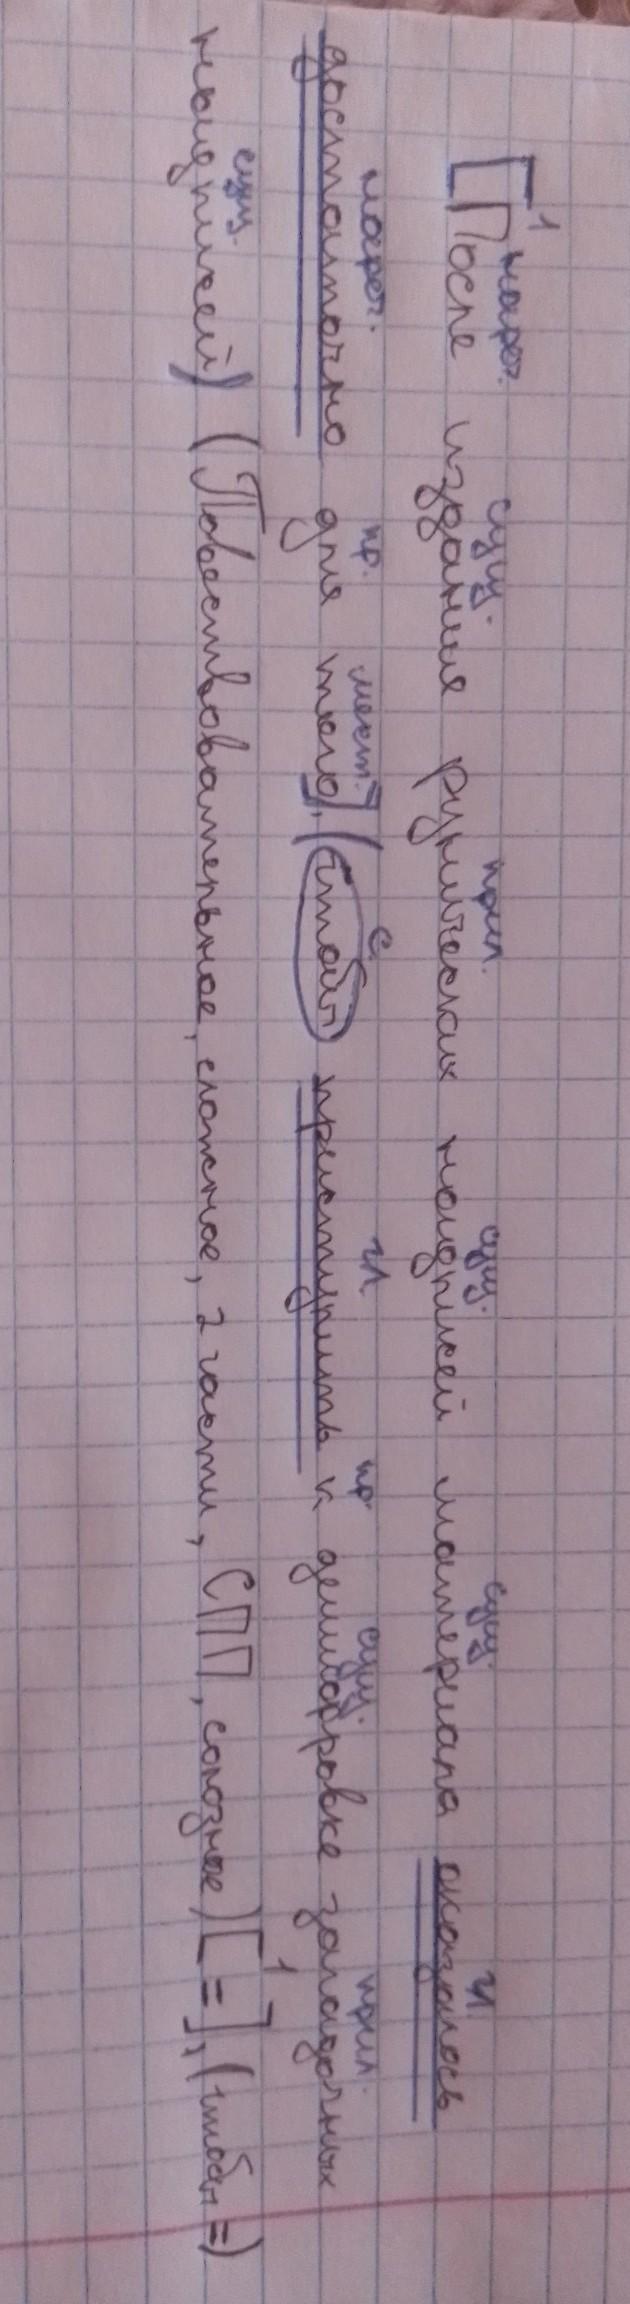 1 нареч. сущ. прил. сущ. сущ. гл.
[После издания рунических надписей материала оказалось
нареч. пр. мест. с. гл. пр. сущ. прил.
достаточно для того], (чтобы приступить к дешифровке загадочных
сущ.
надписей) (Повествовательное, сложное, 2 части, СПП, союзное) [ = ]1, (чтобы =)